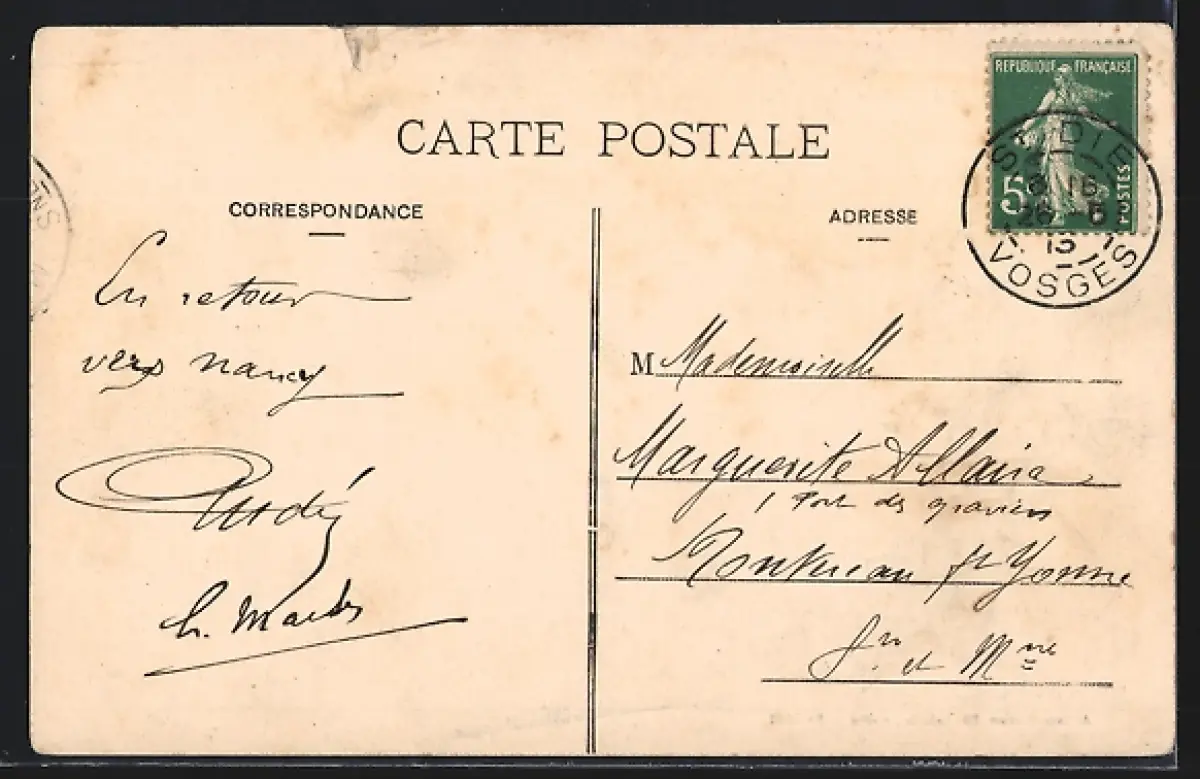 CARTE POSTALE
CORRESPONDANCE
ADRESSE
REPUBLIQUE FRANÇAISE
5
POSTES
ST DIÉ
26 - 6
13
VOSGES
En retour
vers Nancy
André
M Mademoiselle
Marguerite Allaire
1 Port des graviers
Montereau ft Yonne
Sn et Mne